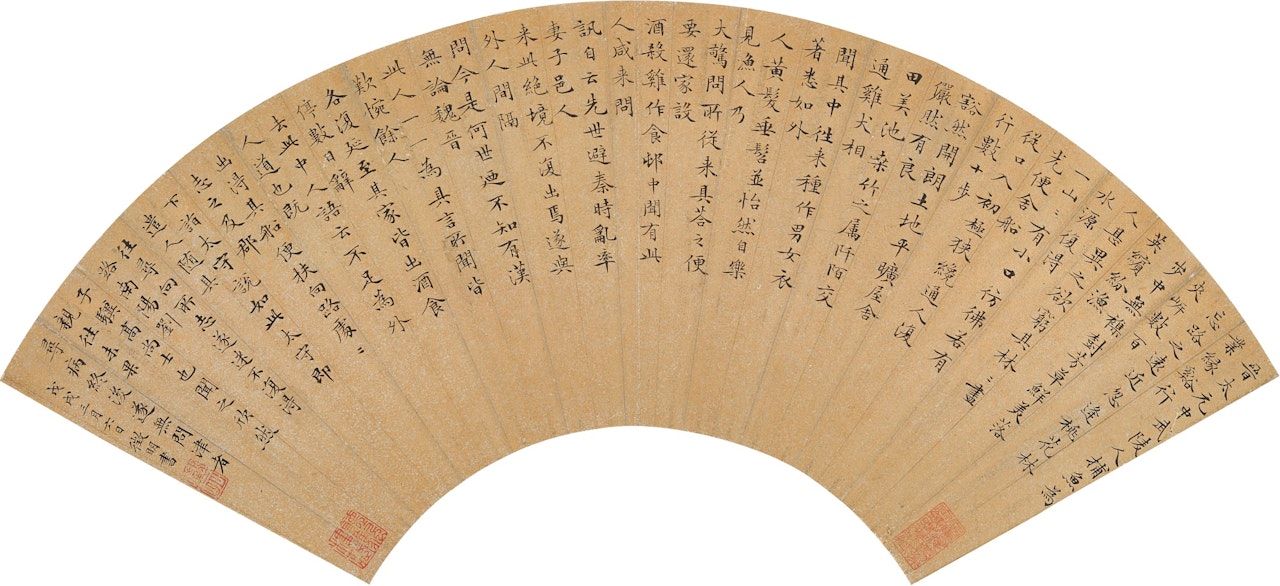 晉太元中武陵人捕魚為
業緣谿行
忘路之遠近忽逢桃花林
夾岸數百
步中無雜樹芳草鮮美落
英繽紛漁
人甚異之欲窮其林〻盡
水源復得
一山〻有小口彷彿若有
光便舍船
從口入初極狹纔通人復
行數十步
豁然開朗土地平曠屋舍
儼然有良
田美池桑竹之属阡陌交
通雞犬相
聞其中往来種作男女衣
著悉如外
人黃髮垂髫並怡然自樂
見漁人乃
大驚問所從来具荅之便
要還家設
酒殺雞作食邨中聞有此
人咸来問
訊自云先世避秦時亂率
妻子邑人
来此絕境不復出焉遂與
外人間隔
問今是何世迺不知有漢
無論魏晉
此人一一為具言所聞皆
歎惋餘人
各復延至其家皆出酒食
停數日辭
去此中人語云不足為外
人道也既
出得其船便扶向路處〻
志之及郡
下詣太守說如此太守即
遣人随
往尋向所志遂迷不復得
路南陽劉
子驥高尚士也聞之欣然
親往未果
尋病終後遂無問津者
戊戌三月六日徵明書